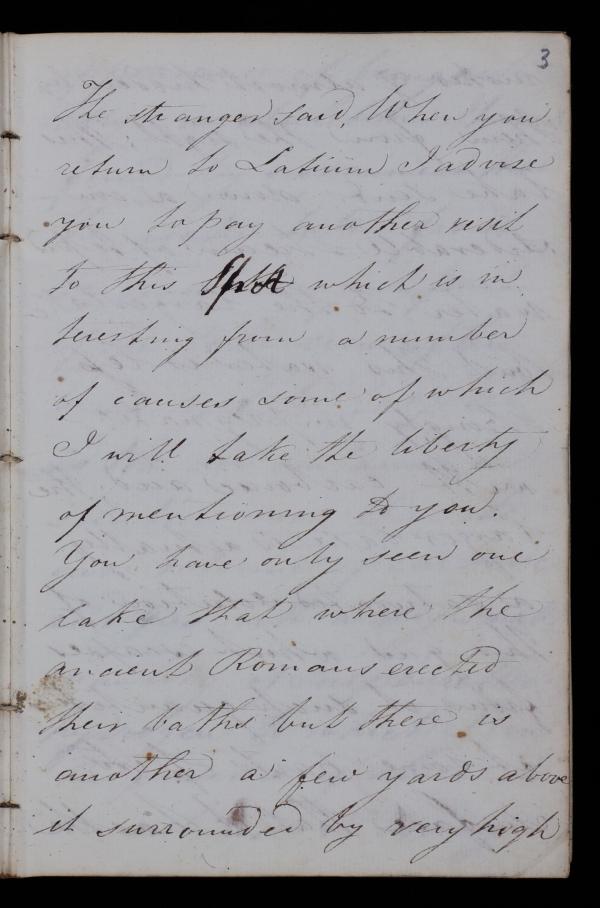 3
The stranger said, When you
return to Latium I advise
you to pay another visit
to this Spot which is in
teresting from a number
of causes some of which
I will take the liberty
of mentioning to you.
You have only seen one
lake that where the
ancient Romans erected
their baths but there is
another a few yards above
it surrounded by very high